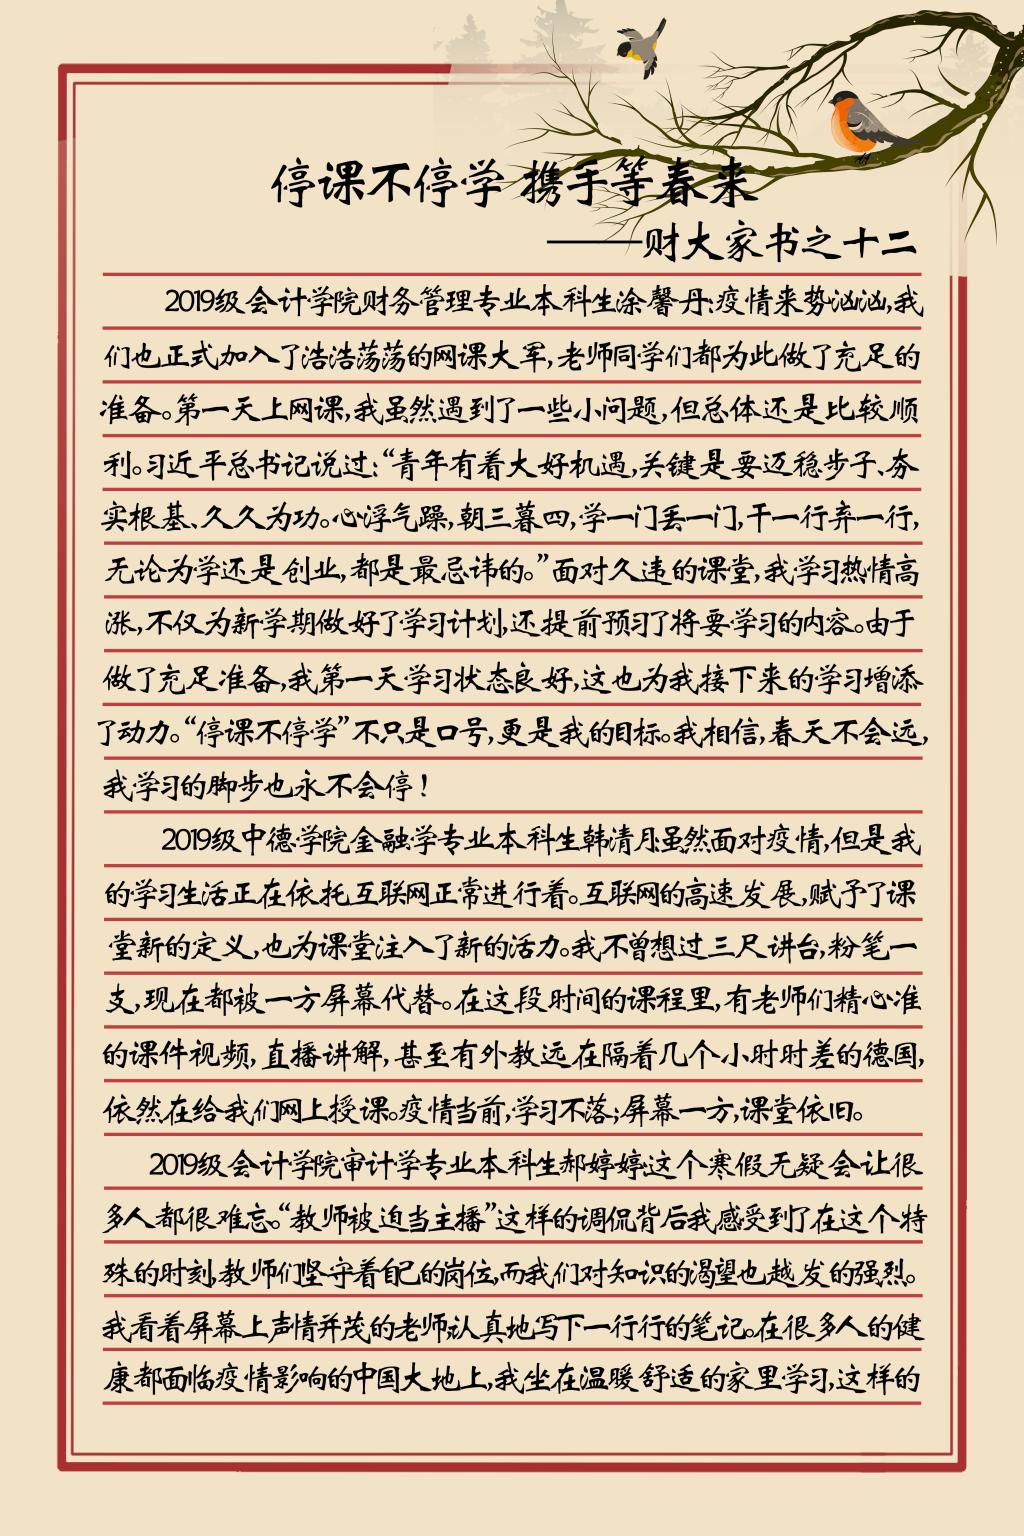 停课不停学 携手等春来
———财大家书之十二
2019级会计学院财务管理专业本科生涂馨丹:疫情来势汹汹,我
们也正式加入了浩浩荡荡的网课大军,老师同学们都为此做了充足的
准备。第一天上网课,我虽然遇到了一些小问题,但总体还是比较顺
利。习近平总书记说过:“青年有着大好机遇,关键是要迈稳步子、夯
实根基、久久为功。心浮气躁,朝三暮四,学一门丢一门,干一行弃一行,
无论为学还是创业,都是最忌讳的。”面对久违的课堂,我学习热情高
涨,不仅为新学期做好了学习计划,还提前预习了将要学习的内容。由于
做了充足准备,我第一天学习状态良好,这也为我接下来的学习增添
了动力。“停课不停学”不只是口号,更是我的目标。我相信,春天不会远,
我学习的脚步也永不会停!
2019级中德学院金融学专业本科生韩清月:虽然面对疫情,但是我
的学习生活正在依托互联网正常进行着。互联网的高速发展,赋予了课
堂新的定义,也为课堂注入了新的活力。我不曾想过三尺讲台,粉笔一
支,现在都被一方屏幕代替。在这段时间的课程里,有老师们精心准
的课件视频,直播讲解,甚至有外教远在隔着几个小时时差的德国,
依然在给我们网上授课。疫情当前,学习不落;屏幕一方,课堂依旧。
2019级会计学院审计学专业本科生郝婷婷:这个寒假无疑会让很
多人都很难忘。“教师被迫当主播”这样的调侃背后我感受到了在这个特
殊的时刻,教师们坚守着自己的岗位,而我们对知识的渴望也越发的强烈。
我看着屏幕上声情并茂的老师,认真地写下一行行的笔记。在很多人的健
康都面临疫情影响的中国大地上,我坐在温暖舒适的家里学习,这样的